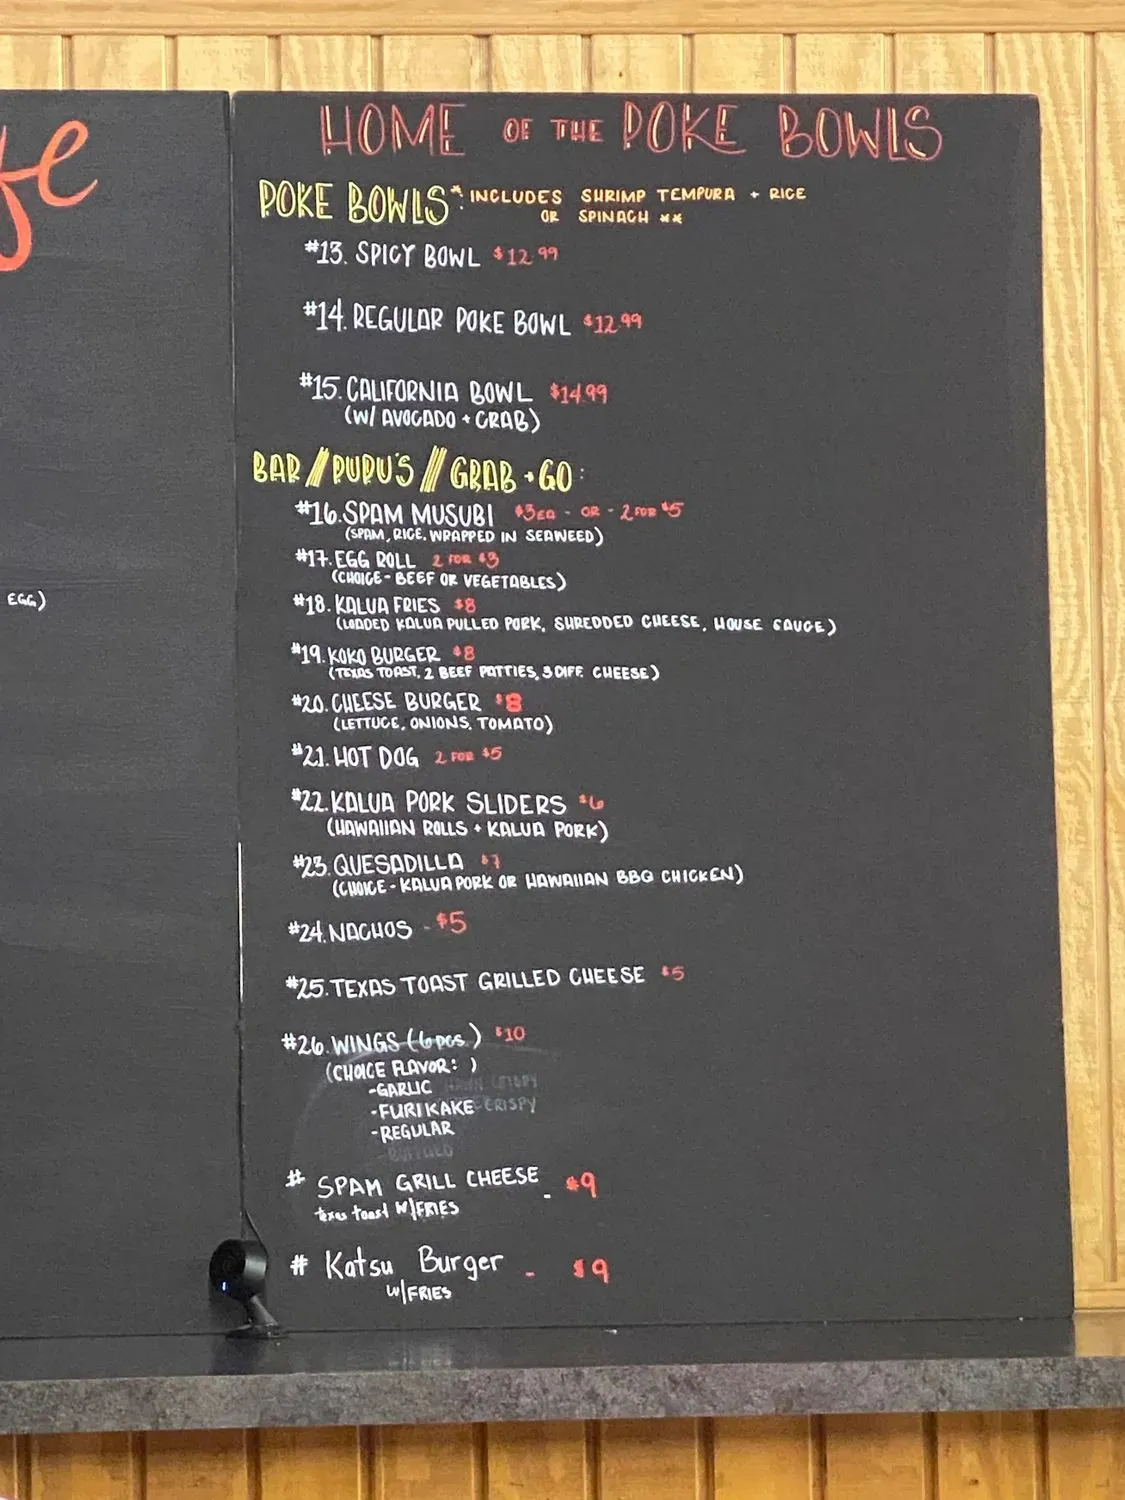 fe
EGG)
HOME OF THE POKE BOWLS
POKE BOWLS*: INCLUDES SHRIMP TEMPURA + RICE
OR SPINACH **
#13. SPICY BOWL $12.99
#14. REGULAR POKE BOWL $12.99
#15. CALIFORNIA BOWL $14.99
(W/ AVOCADO + CRAB)
BAR // PUPU'S // GRAB + GO:
#16. SPAM MUSUBI $3EA - OR - 2 FOR $5
(SPAM, RICE, WRAPPED IN SEAWEED)
#17. EGG ROLL 2 FOR $3
(CHOICE - BEEF OR VEGETABLES)
#18. KALUA FRIES $8
(LOADED KALUA PULLED PORK, SHREDDED CHEESE, HOUSE SAUCE)
#19. KOKO BURGER $8
(TEXAS TOAST, 2 BEEF PATTIES, 3 DIFF. CHEESE)
#20. CHEESE BURGER $8
(LETTUCE, ONIONS, TOMATO)
#21. HOT DOG 2 FOR $5
#22. KALUA PORK SLIDERS $6
(HAWAIIAN ROLLS + KALUA PORK)
#23. QUESADILLA $7
(CHOICE - KALUA PORK OR HAWAIIAN BBQ CHICKEN)
#24. NACHOS - $5
#25. TEXAS TOAST GRILLED CHEESE $5
#26. WINGS (6 pcs.) $10
(CHOICE FLAVOR: )
-GARLIC CRISPY
-FURIKAKE CRISPY
-REGULAR
-BUFFALO
# SPAM GRILL CHEESE - $9
texas toast W/FRIES
# Katsu Burger - $9
W/FRIES